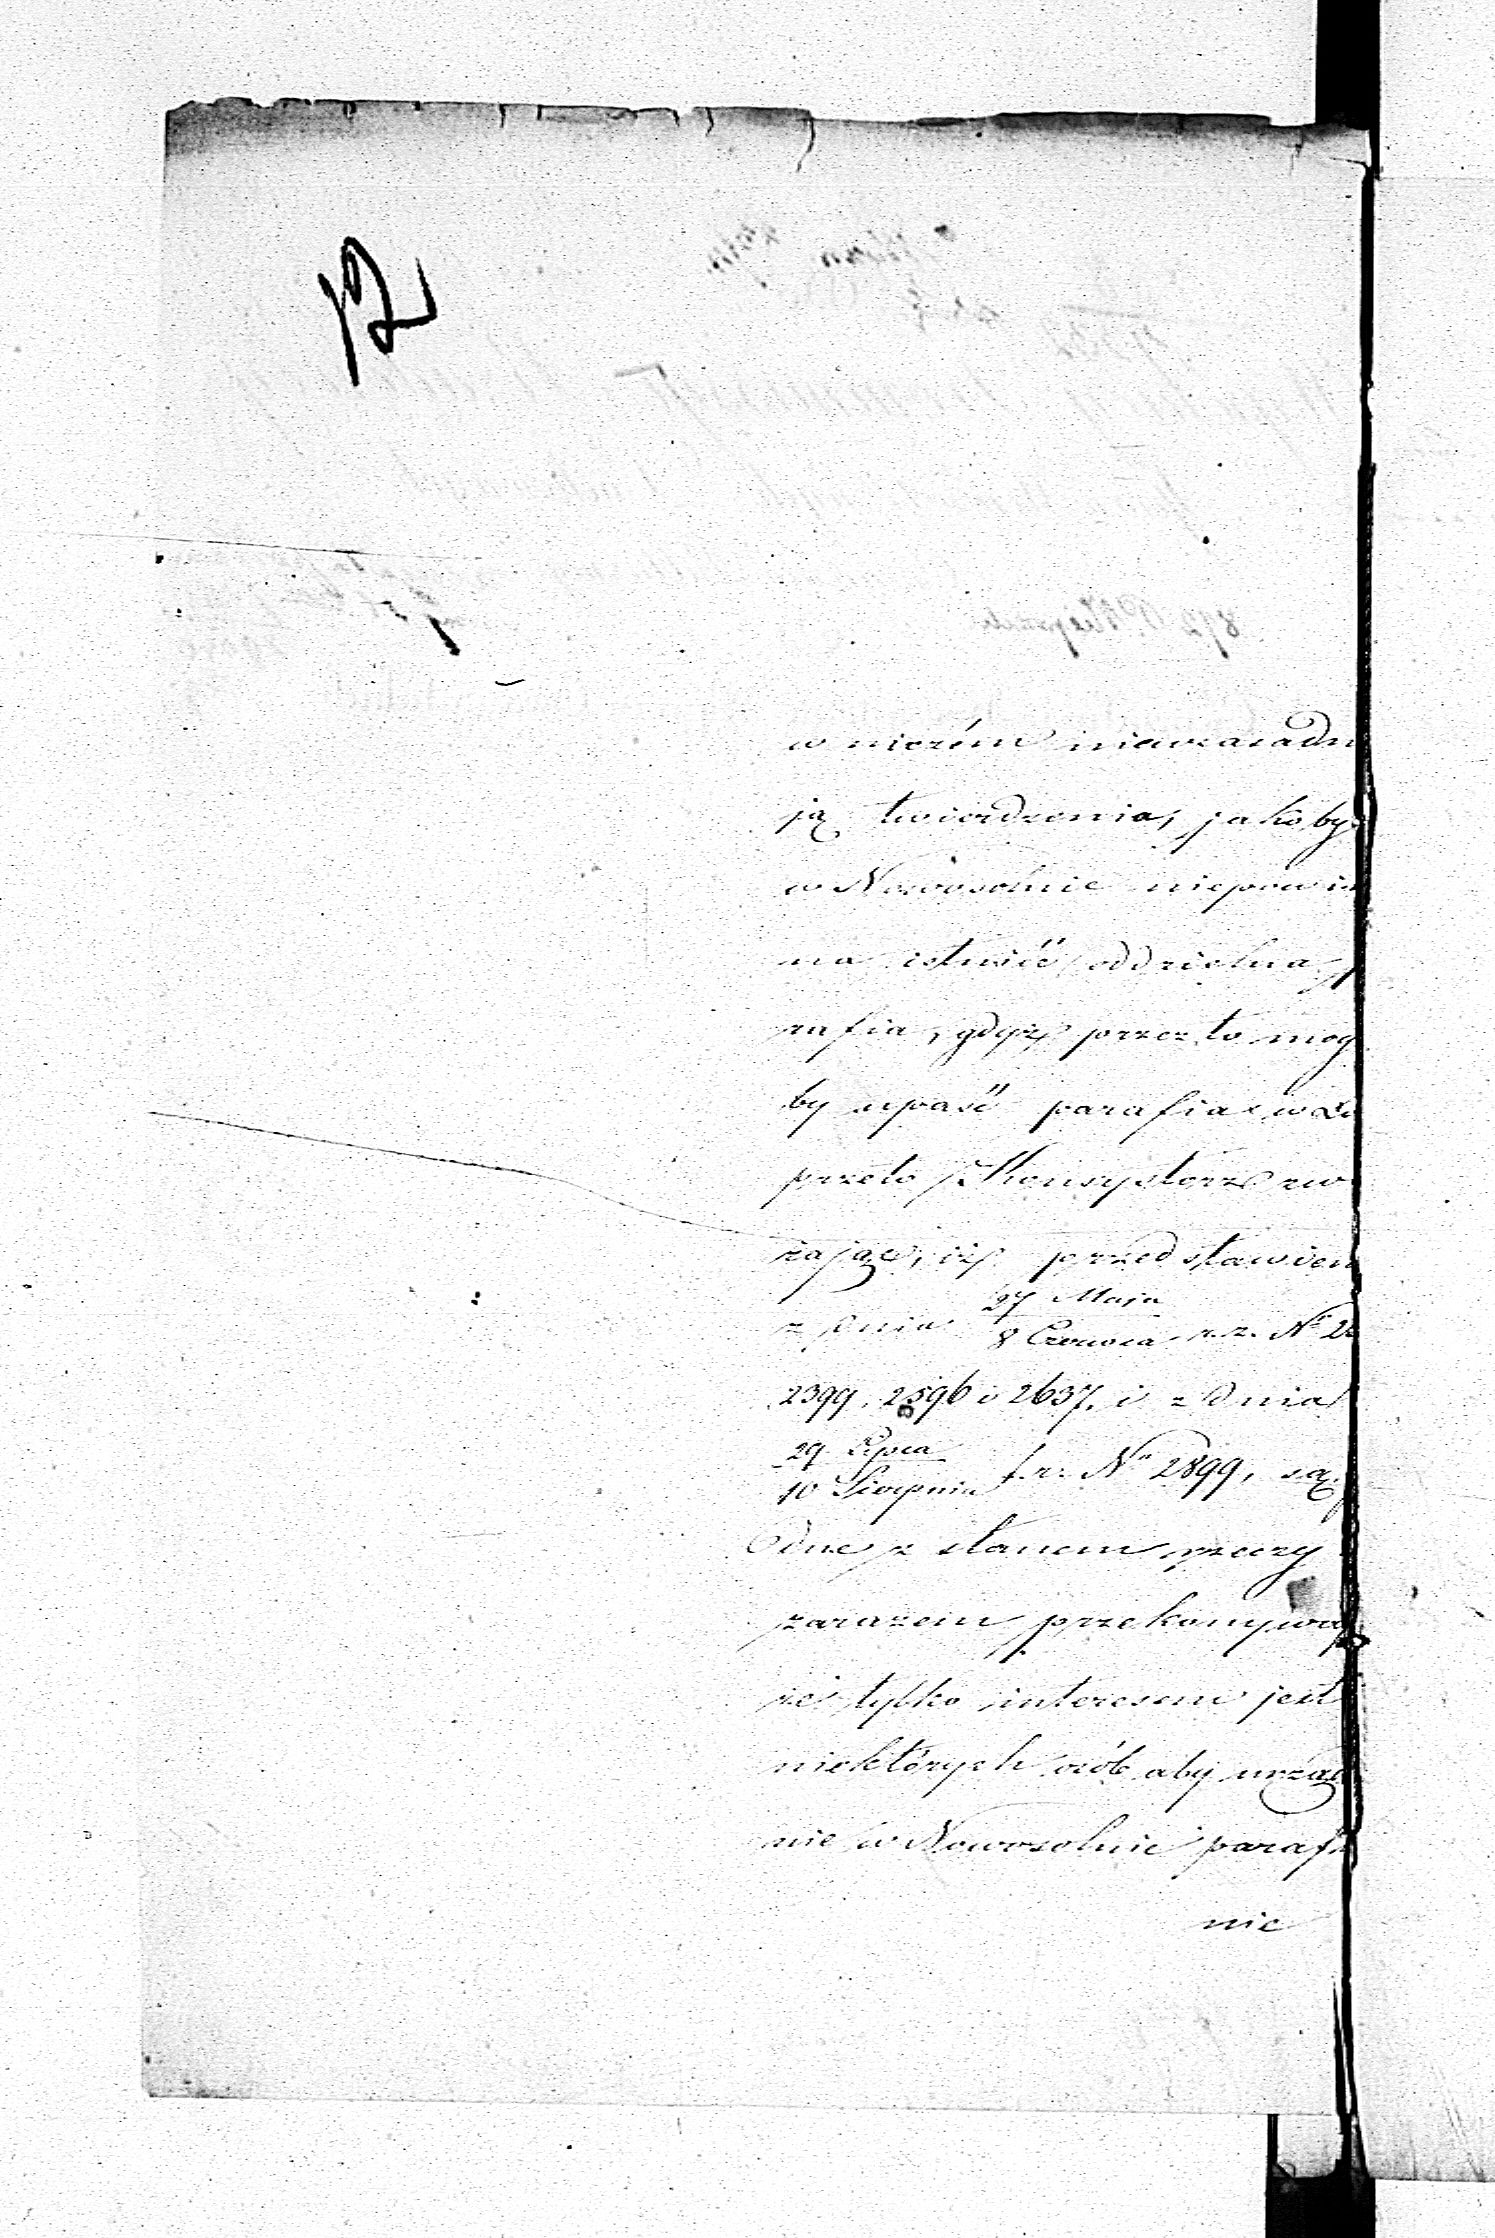 12
w niczém nieuzasadn
ją twierdzenia, jakoby
w Nowosolnie niepowin
na istnieć oddzielna p
rafia, gdyż przez to mog
by upaść parafia w Ło
przeto Konsystorz uw
żając, iż przedstawien
z dnia 27 Maja
8 Czerwca r. z. Nº 2
2399, 2596 i 2637. i z dnia
29 Lipca
10 Sierpnia t. r. Nº 2899, są
dne z stanem rzeczy
zarazem przekonywa
że tylko interesem jest
niektórych osób aby urząd
nie w Nowosolnie parafi
nie